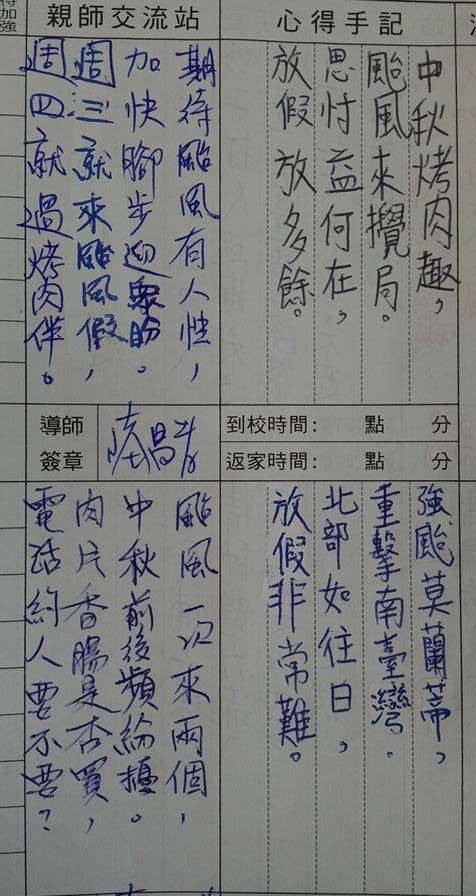 加強
心得手記
中秋烤肉趣，
颱風來攪局。
思忖益何在，
放假放多餘。
親師交流站
期待颱風有人性，
加快腳步迎眾盼。
週三就來颱風假，
週四就過烤肉伴。
導師
簽章
到校時間： 點 分
返家時間： 點 分
強颱莫蘭蒂，
重擊南臺灣。
北部如往日，
放假非常難。
颱風一次來兩個，
中秋前後頻紛擾。
肉片香腸是否買，
電話約人要不要？